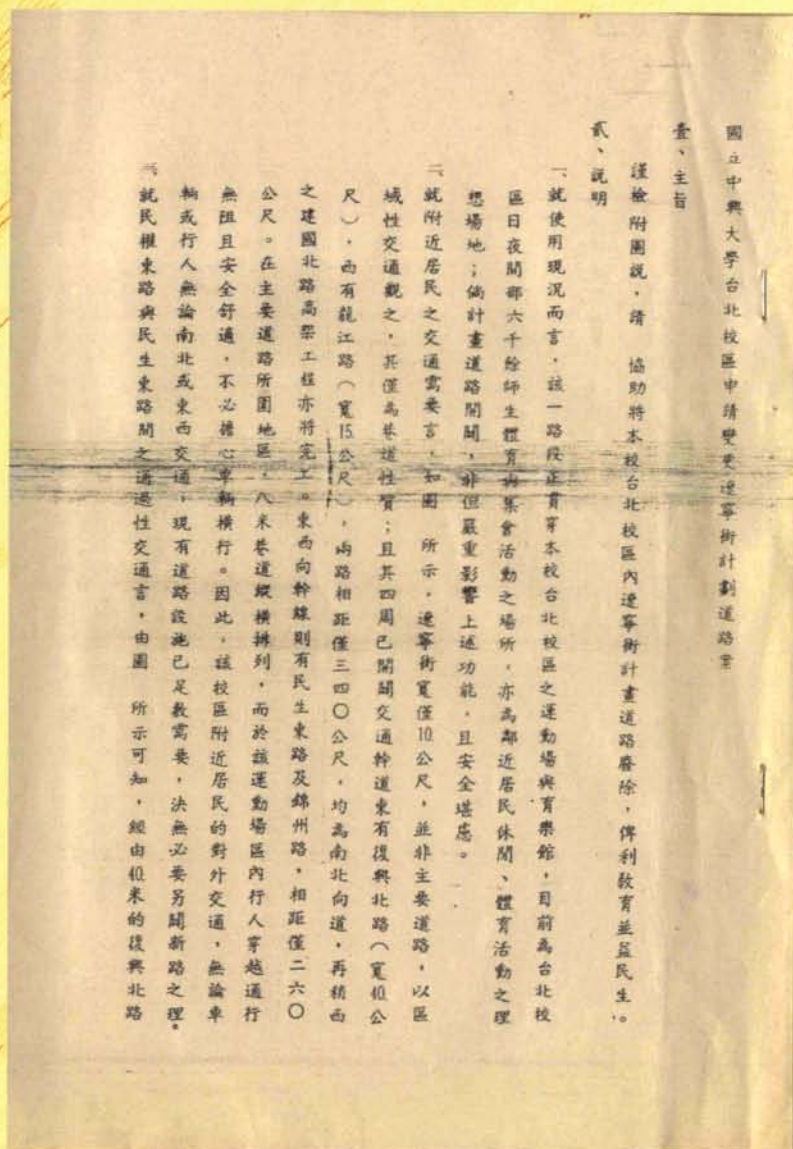 國立中興大學台北校區申請變更遼寧街計劃道路案
壹、主旨
謹檢附圖說，請　協助將本校台北校區內遼寧街計畫道路廢除，俾利教育並益民生。
貳、說明
一、就使用現況而言，該一路段正貫穿本校台北校區之運動場與育樂館，目前為台北校
區日夜間部六千餘師生體育與集會活動之場所，亦為鄰近居民休閒、體育活動之理
想場地；倘計畫道路開闢，非但嚴重影響上述功能，且安全堪慮。
二、就附近居民之交通需要言，如圖　所示，遼寧街寬僅10公尺，並非主要道路，以區
域性交通觀之，其僅為巷道性質；且其四周已開闢交通幹道東有復興北路（寬40公
尺），西有龍江路（寬15公尺），兩路相距僅三四〇公尺，均為南北向道，再稍西
之建國北路高架工程亦將完工。東西向幹線則有民生東路及錦州路，相距僅二六〇
公尺。在主要道路所圍地區，八米巷道縱橫排列，而於該運動場區內行人穿越通行
無阻且安全舒適，不必擔心車輛橫行。因此，該校區附近居民的對外交通，無論車
輛或行人無論南北或東西交通，現有道路設施已足敷需要，決無必要另闢新路之理。
三、就民權東路與民生東路間之通過性交通言，由圖　所示可知，經由40米的復興北路